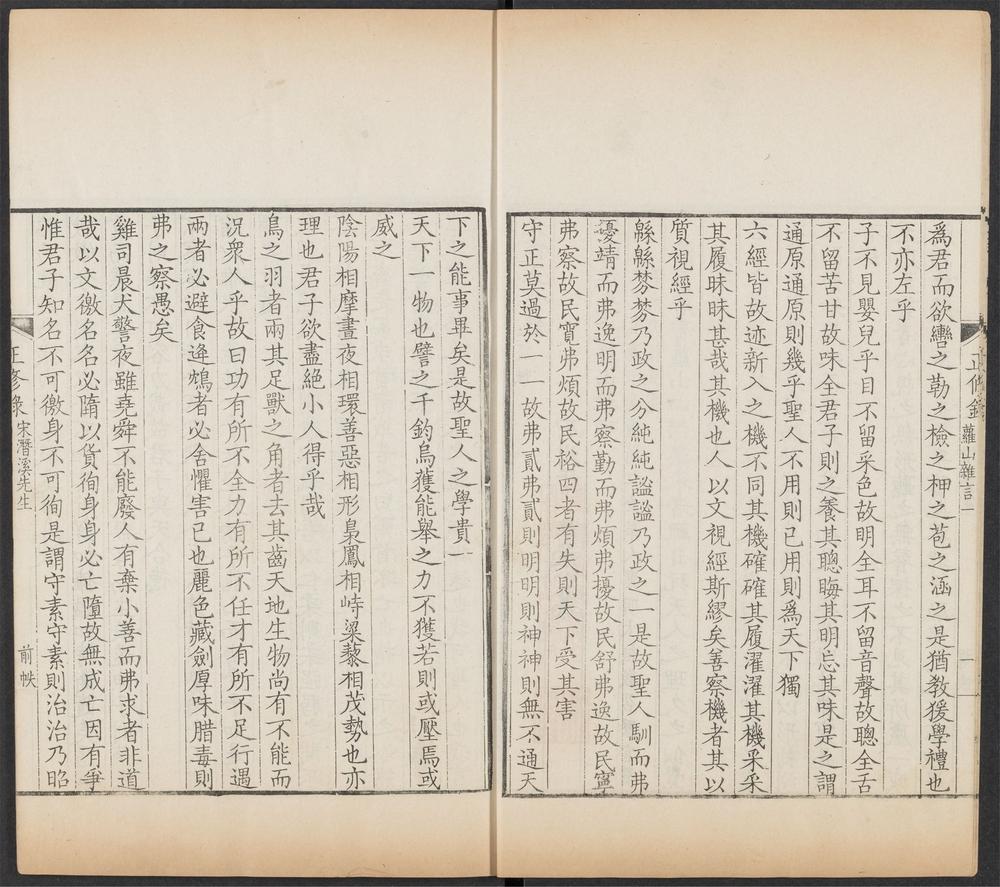 正修錄 蘿山雜言 一
爲君而欲轡之勒之檢之柙之苞之涵之是猶教猨學禮也
不亦左乎
子不見嬰兒乎目不留采色故明全耳不留音聲故聰全舌
不留苦甘故味全君子則之養其聰晦其明忘其味是之謂
通原通原則幾乎聖人不用則已用則爲天下獨
六經皆故迹新入之機不同其機確確其履濯濯其機采采
其履昧昧甚哉其機也人以文視經斯繆矣善察機者其以
質視經乎
緜緜棼棼乃政之分純純謐謐乃政之一是故聖人馴而弗
擾靖而弗逸明而弗察勤而弗煩弗擾故民舒弗逸故民寧
弗察故民寬弗煩故民裕四者有失則天下受其害
守正莫過於一一故弗貳弗貳則明明則神神則無不通天
下之能事畢矣是故聖人之學貴一
天下一物也譬之千鈞烏獲能舉之力不獲若則或壓焉或
威之
陰陽相摩晝夜相環善惡相形梟鳳相峙粱藜相茂勢也亦
理也君子欲盡絕小人得乎哉
鳥之羽者兩其足獸之角者去其齒天地生物尚有不能而
況衆人乎故曰功有所不全力有所不任才有所不足行遇
兩者必避食逢鴆者必舍懼害已也麗色藏劍厚味腊毒則
弗之察愚矣
雞司晨犬警夜雖堯舜不能廢人有棄小善而弗求者非道
哉以文徼名名必隳以貨徇身身必亡墮故無成亡因有爭
惟君子知名不可徼身不可徇是謂守素守素則治治乃昭
正修錄 宋潛溪先生 前帙